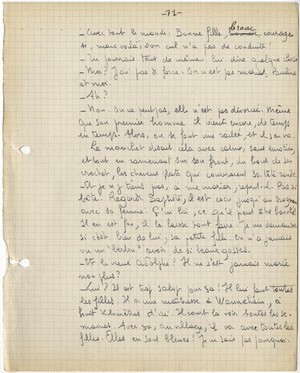 - 71 -
_ Avec tout le monde. Bonne fille, brave, courageu-
se, mais voilà. Son cul n'a pas de conduite !
_ Tu pourrais tout de même lui dire quelque chose
_ Moi ? J'ai pas la force. On n'est pas mariés, Pauline
et moi.
_ Ah ?
_ Non. On ne peut pas, elle n'est pas divorcée. Même
que son premier homme il vient encore, de temps
en temps. Alors, on se fout une raclée et il
Le manchot disait cela avec calme, sans émotion,
et tout en ramenant sur son front, du bout de son
crochet, les cheveux plats que couronnait sa tête
_ Et je n'y tiens pas, à me marier, reprit-il. Pas si
bête ! Regarde Baptiste, il est cocu jusqu'au
avec sa femme. C'll'là, ce qu'elle peut être
Il en est fou, il la laisse tout faire. Je me demande
si c'est bien de lui, sa petite fille. On n'a jamais
vu un "berlou" avoir de si beaux gosses.
_ Et le vieux Adolphe ? Il ne s'est jamais marié
non plus ?
_ Lui ? Il est trop salop pour ça ! Il lui faut toutes
les filles. Il a une maîtresse à Wannehain, à
huit kilomètres d'ici. Il court la voir toutes les se-
maines. Avec ça, au village, il va avec toutes les
filles. Elles en sont bleues ! Je ne sais pas pourquoi.